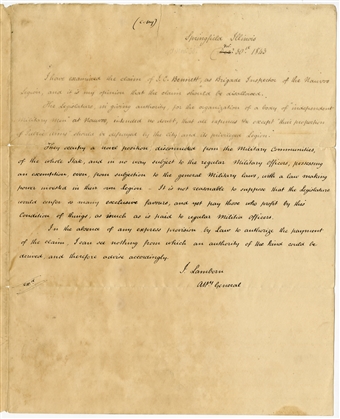 (Copy)
Springfield Illinois
30th 1843
I have examined the claim of J. C. Bennett, as Brigade Inspector of the Nauvoo
Legion, and it is my opinion that the claim should be disallowed.
The Legislature in giving authority for the organization of a body of "independent
military men" at Nauvoo, intended no doubt, that all expenses except their proportion
of public arms should be defrayed by the city and its privileged Legion.
They occupy a sort position disconnected from the Military Communities,
of the whole State, and in no way subject to the regular Military officers, possessing
an exemption even from subjection to the general Military laws, with a law making
power invested in their own Legion. It is not reasonable to suppose that the Legislature
would confer so many exclusive favours, and yet pay those who profit by this
Condition of things, as much as is paid to regular Militia officers.
In the absence of any express provision by Law to authorize the payment
of the claim, I can see nothing from which an authority of the kind could be
derived, and therefore advise accordingly.
J. Lamborn
Atty General